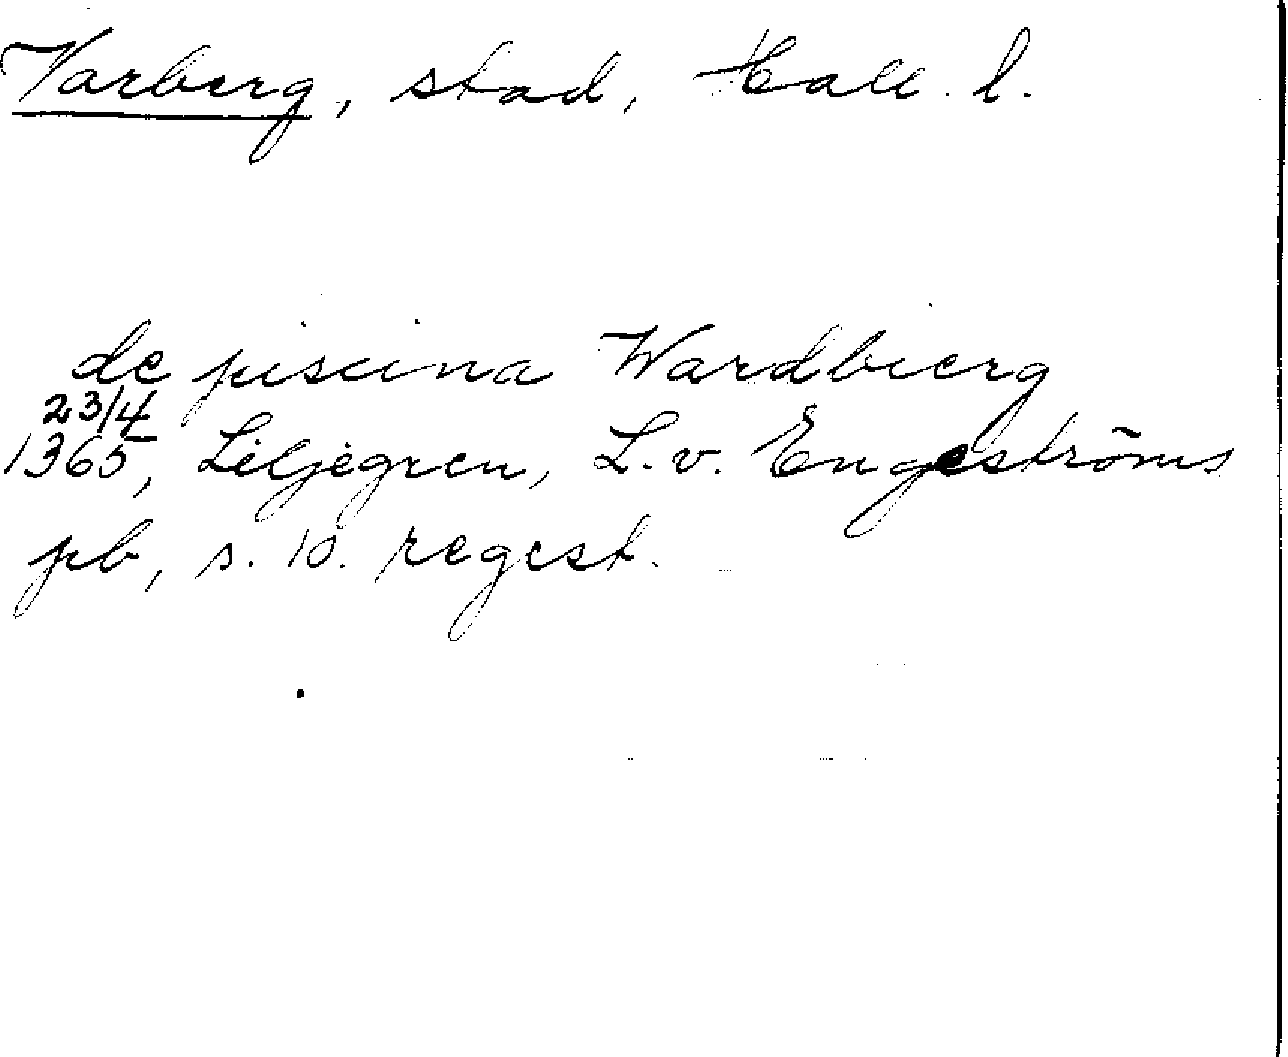 Varberg, stad, Hall. l.
de piscina Wardbierg
23/4
1365, Liljegren, L. v. Engeströms
pb, s. 10. regest.